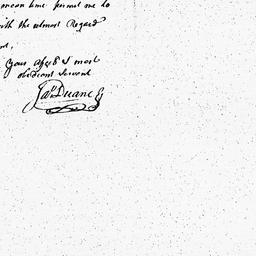 mean time permit me to
with the utmost Regard
Your Affect & most
obedient Servant
Jas Duane